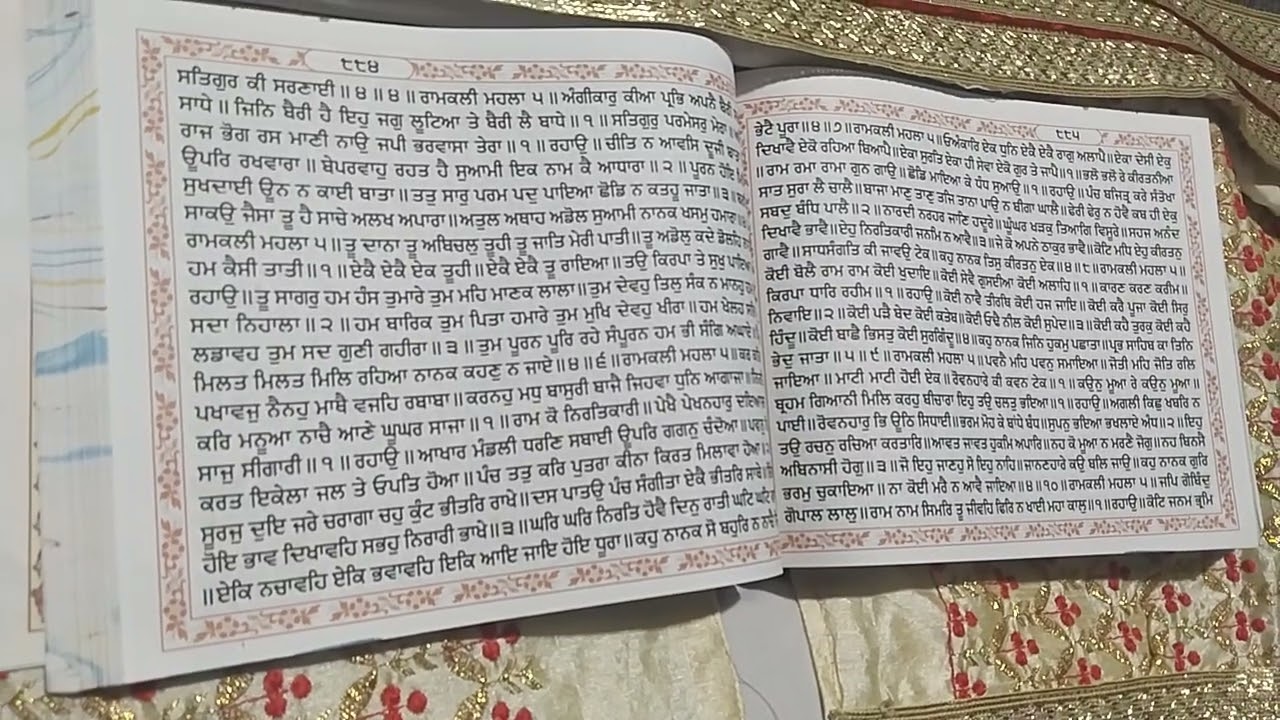 ੮੮੪
ਸਤਿਗੁਰ ਕੀ ਸਰਣਾਈ॥੪॥੪॥ਰਾਮਕਲੀ ਮਹਲਾ ੫॥ਅੰਗੀਕਾਰੁ ਕੀਆ ਪ੍ਰਭਿ ਅਪਨੈ ਬੈਰੀ
ਸਾਧੇ॥ਜਿਨਿ ਬੈਰੀ ਹੈ ਇਹੁ ਜਗੁ ਲੂਟਿਆ ਤੇ ਬੈਰੀ ਲੈ ਬਾਧੇ॥੧॥ਸਤਿਗੁਰੁ ਪਰਮੇਸਰੁ ਮੇਰਾ॥
ਰਾਜ ਭੋਗ ਰਸ ਮਾਣੀ ਨਾਉ ਜਪੀ ਭਰਵਾਸਾ ਤੇਰਾ॥੧॥ਰਹਾਉ॥ਚੀਤਿ ਨ ਆਵਸਿ ਦੂਜੀ ਬਾਤਾ
ਊਪਰਿ ਰਖਵਾਰਾ॥ਬੇਪਰਵਾਹੁ ਰਹਤ ਹੈ ਸੁਆਮੀ ਇਕ ਨਾਮ ਕੈ ਆਧਾਰਾ॥੨॥ਪੂਰਨ ਹੋਇ
ਸੁਖਦਾਈ ਊਨ ਨ ਕਾਈ ਬਾਤਾ॥ਤਤੁ ਸਾਰੁ ਪਰਮ ਪਦੁ ਪਾਇਆ ਛੋਡਿ ਨ ਕਤਹੂ ਜਾਤਾ॥੩॥
ਸਾਕਉ ਜੈਸਾ ਤੂ ਹੈ ਸਾਚੇ ਅਲਖ ਅਪਾਰਾ॥ਅਤੁਲ ਅਥਾਹ ਅਡੋਲ ਸੁਆਮੀ ਨਾਨਕ ਖਸਮੁ ਹਮਾਰਾ
ਰਾਮਕਲੀ ਮਹਲਾ ੫॥ਤੂ ਦਾਨਾ ਤੂ ਅਬਿਚਲੁ ਤੂਹੀ ਤੂ ਜਾਤਿ ਮੇਰੀ ਪਾਤੀ॥ਤੂ ਅਡੋਲੁ ਕਦੇ ਡੋਲਹਿ
ਹਮ ਕੈਸੀ ਤਾਤੀ॥੧॥ਏਕੈ ਏਕੈ ਏਕ ਤੂਹੀ॥ਏਕੈ ਏਕੈ ਤੂ ਰਾਇਆ॥ਤਉ ਕਿਰਪਾ ਤੇ ਸੁਖੁ ਪਾਇਆ
ਰਹਾਉ॥ਤੂ ਸਾਗਰੁ ਹਮ ਹੰਸ ਤੁਮਾਰੇ ਤੁਮ ਮਹਿ ਮਾਣਕ ਲਾਲਾ॥ਤੁਮ ਦੇਵਹੁ ਤਿਲੁ ਸੰਕ ਨ ਮਾਨਹੁ
ਸਦਾ ਨਿਹਾਲਾ॥੨॥ਹਮ ਬਾਰਿਕ ਤੁਮ ਪਿਤਾ ਹਮਾਰੇ ਤੁਮ ਮੁਖਿ ਦੇਵਹੁ ਖੀਰਾ॥ਹਮ ਖੇਲਹ
ਲਡਾਵਹ ਤੁਮ ਸਦ ਗੁਣੀ ਗਹੀਰਾ॥੩॥ਤੁਮ ਪੂਰਨ ਪੂਰਿ ਰਹੇ ਸੰਪੂਰਨ ਹਮ ਭੀ ਸੰਗਿ ਅਘਾਏ॥
ਮਿਲਤ ਮਿਲਤ ਮਿਲਿ ਰਹਿਆ ਨਾਨਕ ਕਹਣੁ ਨ ਜਾਏ॥੪॥੬॥ਰਾਮਕਲੀ ਮਹਲਾ ੫॥ਕਰ
ਪਖਾਵਜੁ ਨੈਨਹੁ ਮਾਥੈ ਵਜਹਿ ਰਬਾਬਾ॥ਕਰਨਹੁ ਮਧੁ ਬਾਸੁਰੀ ਬਾਜੈ ਜਿਹਵਾ ਧੁਨਿ ਆਗਾਜਾ॥
ਕਰਿ ਮਨੂਆ ਨਾਚੈ ਆਣੇ ਘੂਘਰ ਸਾਜਾ॥੧॥ਰਾਮ ਕੋ ਨਿਰਤਿਕਾਰੀ॥ਪੇਖੈ ਪੇਖਨਹਾਰੁ ਦਇਆਲਾ
ਸਾਜੁ ਸੀਗਾਰੀ॥੧॥ਰਹਾਉ॥ਆਖਾਰ ਮੰਡਲੀ ਧਰਣਿ ਸਬਾਈ ਊਪਰਿ ਗਗਨੁ ਚੰਦੋਆ॥ਪਵਨੁ
ਕਰਤ ਇਕੇਲਾ ਜਲ ਤੇ ਓਪਤਿ ਹੋਆ॥ਪੰਚ ਤਤੁ ਕਰਿ ਪੁਤਰਾ ਕੀਨਾ ਕਿਰਤ ਮਿਲਾਵਾ ਹੋਆ॥੨॥
ਸੂਰਜੁ ਦੁਇ ਜਰੇ ਚਰਾਗਾ ਚਹੁ ਕੁੰਟ ਭੀਤਰਿ ਰਾਖੇ॥ਦਸ ਪਾਤਉ ਪੰਚ ਸੰਗੀਤਾ ਏਕੈ ਭੀਤਰਿ ਸਾਥੇ॥
ਹੋਇ ਭਾਵ ਦਿਖਾਵਹਿ ਸਭਹੁ ਨਿਰਾਰੀ ਭਾਖੇ॥੩॥ਘਰਿ ਘਰਿ ਨਿਰਤਿ ਹੋਵੈ ਦਿਨੁ ਰਾਤੀ ਘਟਿ ਘਟਿ
॥ਏਕਿ ਨਚਾਵਹਿ ਏਕਿ ਭਵਾਵਹਿ ਇਕਿ ਆਇ ਜਾਇ ਹੋਇ ਧੂਰਾ॥ਕਹੁ ਨਾਨਕ ਸੋ ਬਹੁਰਿ ਨ ਨਾਚੈ
੮੮੫
ਭੇਟੈ ਪੂਰਾ॥੪॥੭॥ਰਾਮਕਲੀ ਮਹਲਾ ੫॥ਓਅੰਕਾਰਿ ਏਕ ਧੁਨਿ ਏਕੈ ਏਕੈ ਰਾਗੁ ਅਲਾਪੈ॥ਏਕਾ ਦੇਸੀ ਏਕੁ
ਦਿਖਾਵੈ ਏਕੋ ਰਹਿਆ ਬਿਆਪੈ॥ਏਕਾ ਸੁਰਤਿ ਏਕਾ ਹੀ ਸੇਵਾ ਏਕੋ ਗੁਰ ਤੇ ਜਾਪੈ॥੧॥ਭਲੋ ਭਲੋ ਰੇ ਕੀਰਤਨੀਆ
॥ਰਾਮ ਰਮਾ ਰਾਮਾ ਗੁਨ ਗਾਉ॥ਛੋਡਿ ਮਾਇਆ ਕੇ ਧੰਧ ਸੁਆਉ॥੧॥ਰਹਾਉ॥ਪੰਚ ਬਜਿਤ੍ਰ ਕਰੇ ਸੰਤੋਖਾ
ਸਾਤ ਸੁਰਾ ਲੈ ਚਾਲੈ॥ਬਾਜਾ ਮਾਣੁ ਤਾਣੁ ਤਜਿ ਤਾਨਾ ਪਾਉ ਨ ਬੀਗਾ ਘਾਲੈ॥ਫੇਰੀ ਫੇਰੁ ਨ ਹੋਵੈ ਕਬ ਹੀ ਏਕੁ
ਸਬਦੁ ਬੰਧਿ ਪਾਲੈ॥੨॥ਨਾਰਦੀ ਨਰਹਰ ਜਾਣਿ ਹਦੂਰੇ॥ਘੂੰਘਰ ਖੜਕੁ ਤਿਆਗਿ ਵਿਸੂਰੇ॥ਸਹਜ ਅਨੰਦ
ਦਿਖਾਵੈ ਭਾਵੈ॥ਏਹੁ ਨਿਰਤਿਕਾਰੀ ਜਨਮਿ ਨ ਆਵੈ॥੩॥ਜੇ ਕੋ ਅਪਨੇ ਠਾਕੁਰ ਭਾਵੈ॥ਕੋਟਿ ਮਧਿ ਏਹੁ ਕੀਰਤਨੁ
ਗਾਵੈ॥ਸਾਧਸੰਗਤਿ ਕੀ ਜਾਵਉ ਟੇਕ॥ਕਹੁ ਨਾਨਕ ਤਿਸੁ ਕੀਰਤਨੁ ਏਕ॥੪॥੮॥ਰਾਮਕਲੀ ਮਹਲਾ ੫॥
ਕੋਈ ਬੋਲੈ ਰਾਮ ਰਾਮ ਕੋਈ ਖੁਦਾਇ॥ਕੋਈ ਸੇਵੈ ਗੁਸਈਆ ਕੋਈ ਅਲਾਹਿ॥੧॥ਕਾਰਣ ਕਰਣ ਕਰੀਮ॥
ਕਿਰਪਾ ਧਾਰਿ ਰਹੀਮ॥੧॥ਰਹਾਉ॥ਕੋਈ ਨਾਵੈ ਤੀਰਥਿ ਕੋਈ ਹਜ ਜਾਇ॥ਕੋਈ ਕਰੈ ਪੂਜਾ ਕੋਈ ਸਿਰੁ
ਨਿਵਾਇ॥੨॥ਕੋਈ ਪੜੈ ਬੇਦ ਕੋਈ ਕਤੇਬ॥ਕੋਈ ਓਢੈ ਨੀਲ ਕੋਈ ਸੁਪੇਦ॥੩॥ਕੋਈ ਕਹੈ ਤੁਰਕੁ ਕੋਈ ਕਹੈ
ਹਿੰਦੂ॥ਕੋਈ ਬਾਛੈ ਭਿਸਤੁ ਕੋਈ ਸੁਰਗਿੰਦੂ॥੪॥ਕਹੁ ਨਾਨਕ ਜਿਨਿ ਹੁਕਮੁ ਪਛਾਤਾ॥ਪ੍ਰਭ ਸਾਹਿਬ ਕਾ ਤਿਨਿ
ਭੇਦੁ ਜਾਤਾ॥੫॥੯॥ਰਾਮਕਲੀ ਮਹਲਾ ੫॥ਪਵਨੈ ਮਹਿ ਪਵਨੁ ਸਮਾਇਆ॥ਜੋਤੀ ਮਹਿ ਜੋਤਿ ਰਲਿ
ਜਾਇਆ॥ਮਾਟੀ ਮਾਟੀ ਹੋਈ ਏਕ॥ਰੋਵਨਹਾਰੇ ਕੀ ਕਵਨ ਟੇਕ॥੧॥ਕਉਨੁ ਮੂਆ ਰੇ ਕਉਨੁ ਮੂਆ॥
ਬ੍ਰਹਮ ਗਿਆਨੀ ਮਿਲਿ ਕਰਹੁ ਬੀਚਾਰਾ ਇਹੁ ਤਉ ਚਲਤੁ ਭਇਆ॥੧॥ਰਹਾਉ॥ਅਗਲੀ ਕਿਛੁ ਖਬਰਿ ਨ
ਪਾਈ॥ਰੋਵਨਹਾਰੁ ਭਿ ਊਠਿ ਸਿਧਾਈ॥ਭਰਮ ਮੋਹ ਕੇ ਬਾਂਧੇ ਬੰਧ॥ਸੁਪਨੁ ਭਇਆ ਭਖਲਾਏ ਅੰਧ॥੨॥ਇਹੁ
ਤਉ ਰਚਨੁ ਰਚਿਆ ਕਰਤਾਰਿ॥ਆਵਤ ਜਾਵਤ ਹੁਕਮਿ ਅਪਾਰਿ॥ਨਹ ਕੋ ਮੂਆ ਨ ਮਰਣੈ ਜੋਗੁ॥ਨਹ ਬਿਨਸੈ
ਅਬਿਨਾਸੀ ਹੋਗੁ॥੩॥ਜੋ ਇਹੁ ਜਾਣਹੁ ਸੋ ਇਹੁ ਨਾਹਿ॥ਜਾਨਣਹਾਰੇ ਕਉ ਬਲਿ ਜਾਉ॥ਕਹੁ ਨਾਨਕ ਗੁਰਿ
ਭਰਮੁ ਚੁਕਾਇਆ॥ਨਾ ਕੋਈ ਮਰੈ ਨ ਆਵੈ ਜਾਇਆ॥੪॥੧੦॥ਰਾਮਕਲੀ ਮਹਲਾ ੫॥ਜਪਿ ਗੋਬਿੰਦੁ
ਗੋਪਾਲ ਲਾਲੁ॥ਰਾਮ ਨਾਮ ਸਿਮਰਿ ਤੂ ਜੀਵਹਿ ਫਿਰਿ ਨ ਖਾਈ ਮਹਾ ਕਾਲੁ॥੧॥ਰਹਾਉ॥ਕੋਟਿ ਜਨਮ ਭ੍ਰਮਿ